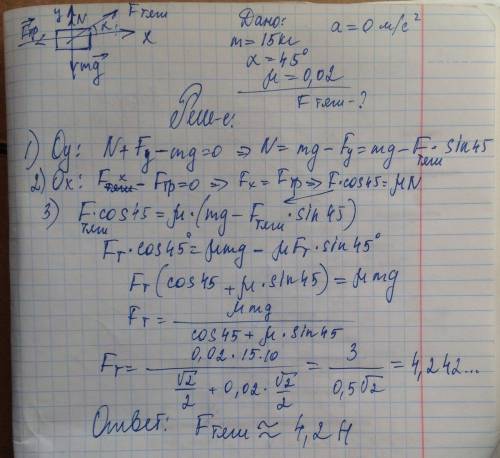 y N Fтяги
Fтр α x
mg
Дано: a = 0 м/с²
m = 15 кг
α = 45°
μ = 0,02
Fтяги - ?
Реш-е:
1) Oy: N + Fy - mg = 0 => N = mg - Fy = mg - Fтяги · sin45
2) Ox: Fx - Fтр = 0 => Fx = Fтр => F·cos45 = μN
3) Fтяги·cos45 = μ·(mg - Fтяги·sin45)
Fт·cos45° = μmg - μFт·sin45°
Fт(cos45 + μ·sin45) = μmg
Fт = μmg / (cos45 + μ·sin45)
Fт = 0,02·15·10 / (√2/2 + 0,02·√2/2) = 3 / 0,5√2 = 4,242...
Ответ: Fтяги ≈ 4,2 Н